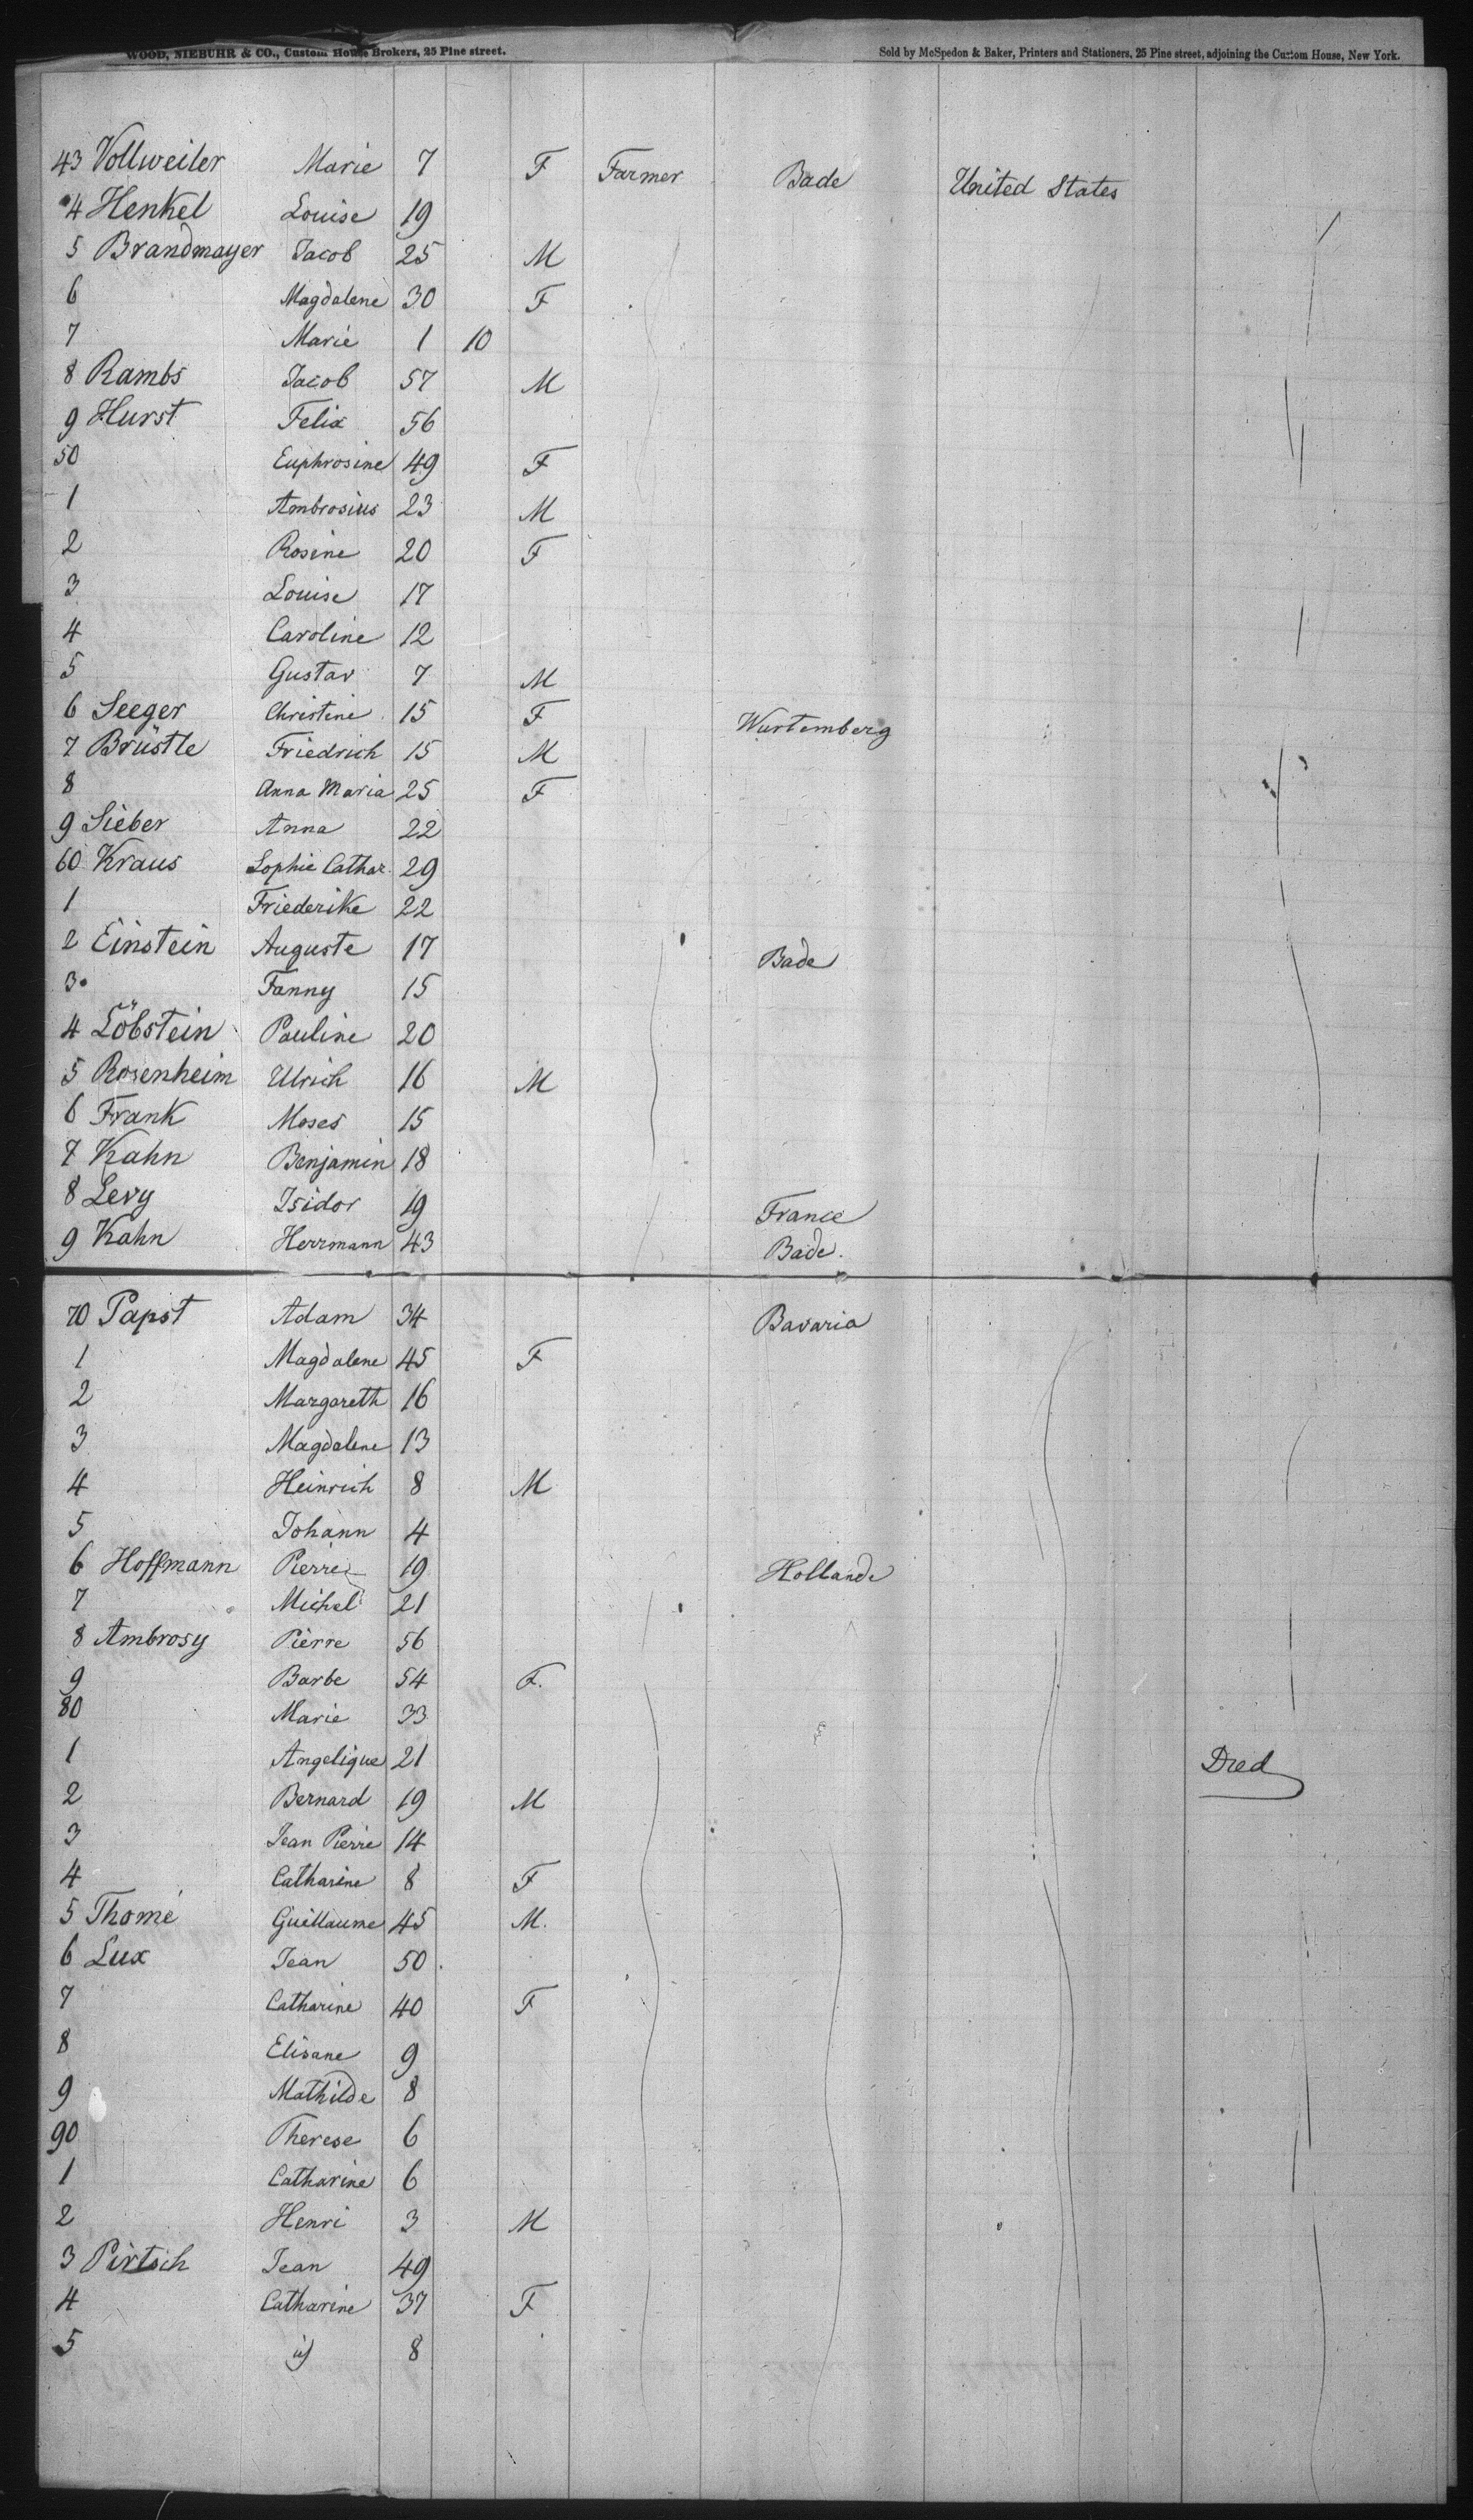 WOOD, NIEBUHR & CO., Custom House Brokers, 25 Pine street. Sold by McSpedon & Baker, Printers and Stationers, 25 Pine street, adjoining the Custom House, New York.
43 Vollweiler Marie 7 F Farmer Bade United States
4 Henkel Louise 19
5 Brandmayer Jacob 25 M
6 Magdalene 30 F
7 Marie 1 10
8 Rambs Jacob 57 M
9 Hurst Felix 56
50 Euphrosine 49 F
1 Ambrosius 23 M
2 Rosine 20 F
3 Louise 17
4 Caroline 12
5 Gustav 7 M
6 Seeger Christine 15 F Wurtemberg
7 Brüstle Friedrich 15 M
8 Anna Maria 25 F
9 Sieber Anna 22
60 Kraus Sophie Cathar. 29
1 Friederike 22
2 Einstein Auguste 17 Bade
3 Fanny 15
4 Löbstein Pauline 20
5 Rosenheim Ulrich 16 M
6 Frank Moses 15
7 Kahn Benjamin 18
8 Levy Isidor 19 France
9 Kahn Herrmann 43 Bade.
70 Papst Adam 34 Bavaria
1 Magdalene 45 F
2 Margareth 16
3 Magdalene 13
4 Heinrich 8 M
5 Johann 4
6 Hoffmann Pierre 19 Hollande
7 Michel 21
8 Ambrosy Pierre 56
9 Barbe 54 F.
80 Marie 33
1 Angelique 21 Died
2 Bernard 19 M
3 Jean Pierre 14
4 Catharine 8 F
5 Thomé Guillaume 45 M.
6 Lux Jean 50
7 Catharine 40 F
8 Elisane 9
9 Mathilde 8
90 Therese 6
1 Catharine 6
2 Henri 3 M
3 Pirtsch Jean 49
4 Catharine 37 F
5 id 8